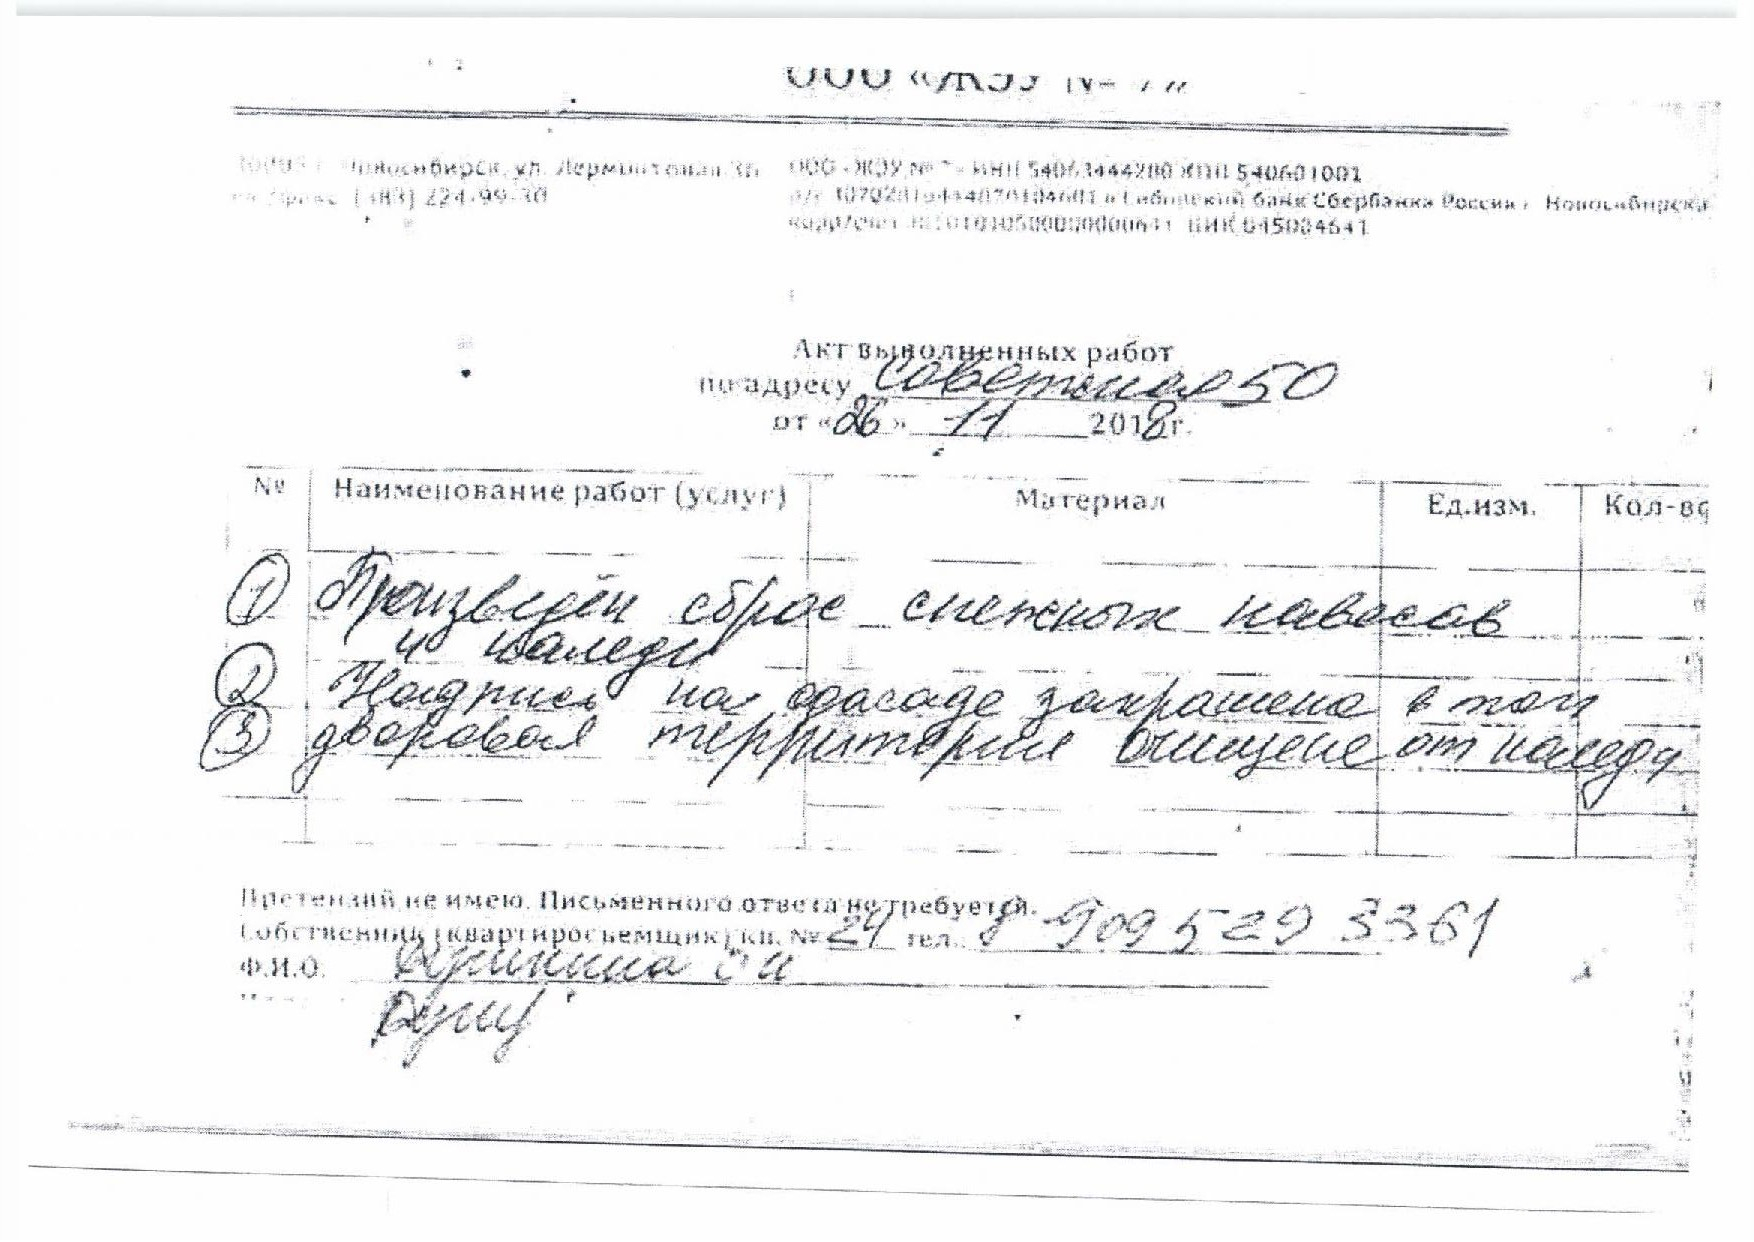 ООО «ЖЭУ № 7»
Новосибирск, ул. Лермонтова 36
(383) 224-99-30
ООО «ЖЭУ № 7» ИНН 54063444280 КПП 540601001
в Сибирский банк Сбербанка России г. Новосибирска
корр/счет БИК 045004641
Акт выполненных работ
по адресу Советская 50
от «26» 11 2018г.
№ Наименование работ (услуг) Материал Ед.изм. Кол-во
1 Произведён сброс снежных навесов
и наледи
2 Надпись на фасаде закрашена в тон
3 дворовая территория очищена от наледи
Претензий не имею. Письменного ответа не требуется.
Собственник (квартиросъемщик) кв. № 24 тел. 8-909 529 3361
Ф.И.О.